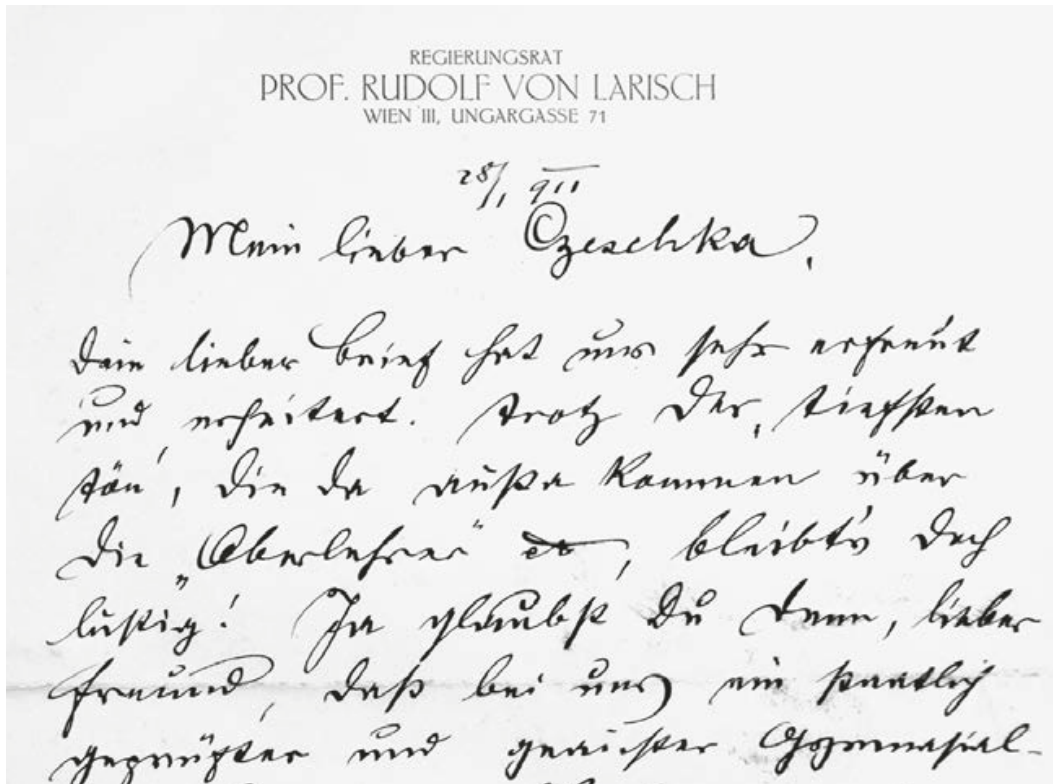 REGIERUNGSRAT
PROF. RUDOLF VON LARISCH
WIEN III, UNGARGASSE 71
28/1 911
Mein lieber Czeschka,
Dein lieber Brief hat uns sehr erfreut
und erheitert. Trotz der „tiafsten
Tön', die da außa kommen über
die „Oberlehrer“, bleibt's doch
lustig! Ja glaubst Du denn, lieber
Freund, daß bei uns ein staatlich
geprüfter und geaichter Gymnasial-